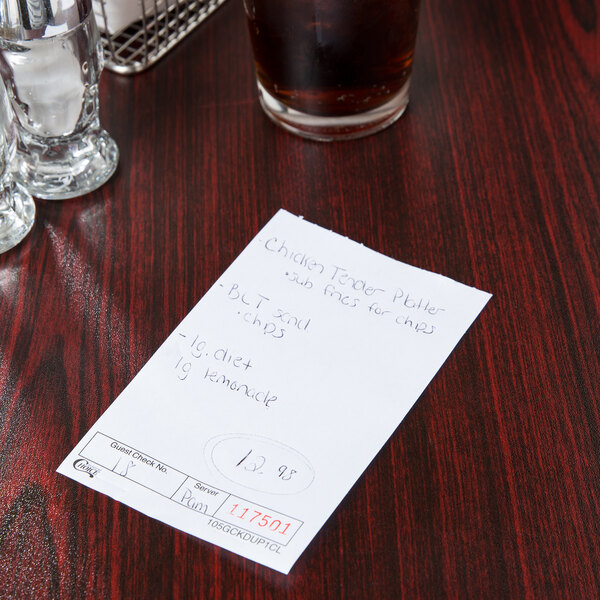 - Chicken Tender Platter
• sub fries for chips
- BLT sand
• chips
- lg. diet
lg lemonade
12.98
Guest Check No.
18
CHOICE
Server
Pam
117501
105GCKDUP1CL